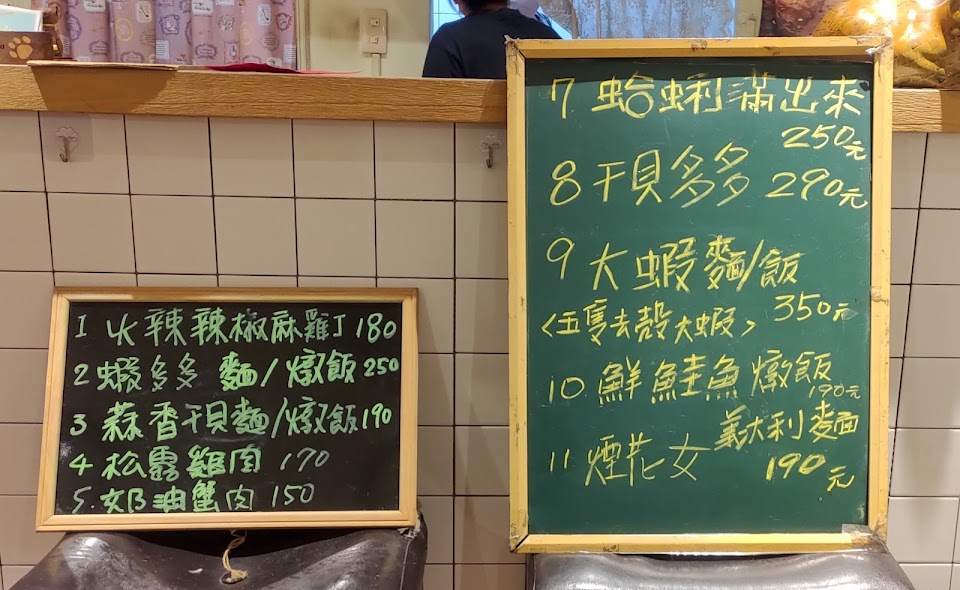 1 火辣辣椒麻雞丁 180
2 蝦多多 麵/燉飯 250
3 蒜香干貝麵/燉飯 190
4 松露雞肉 170
5. 奶油蟹肉 150
7 蛤蜊滿出來
250元
8 干貝多多 290元
9 大蝦麵/飯
<五隻去殼大蝦> 350元
10 鮮鮭魚燉飯
190元
11 煙花女 義大利麵
190元